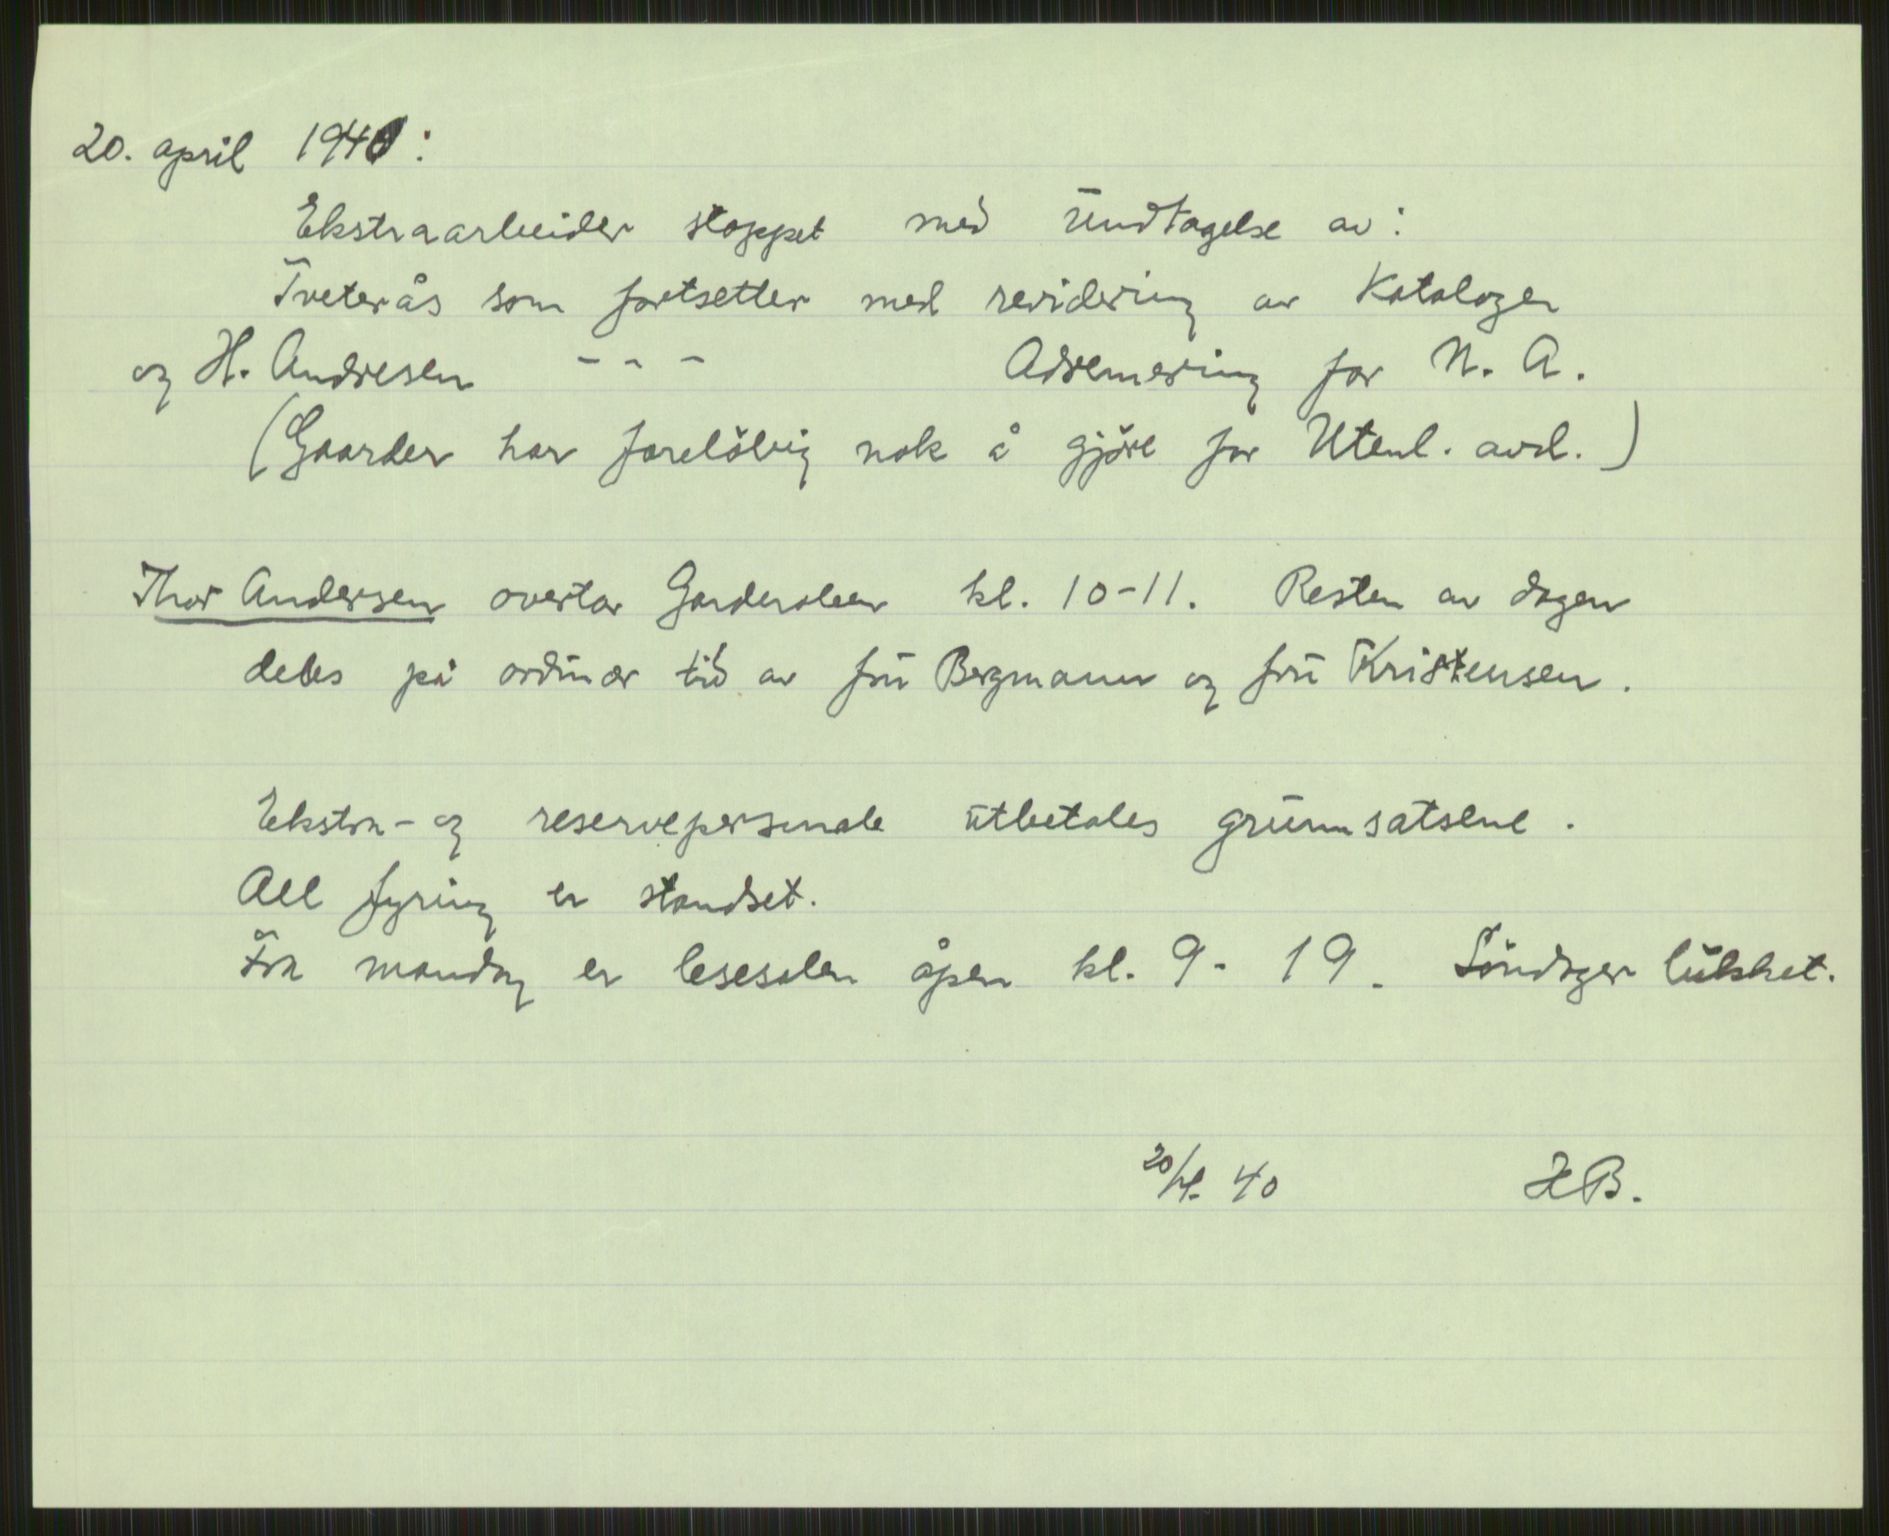 20. april 1940:
Ekstraarbeider stoppet med undtagelse av:
Tveterås som fortsetter med revidering av Katalogen
og H. Andresen - - - Adremering for N. A.
(Gaarder har foreløbig nok å gjøre for Utenl. avd.)
Thor Andersen overtar Garderoben kl. 10-11. Resten av dagen
deles på ordinær tid av fru Bergmann og fru Kristensen.
Ekstra- og reservepersonale utbetales grunnsatsene.
All fyring er standset.
Fra mandag er lesesalen åpen kl. 9 - 19. Søndager lukket.
20/4. 40 HB.